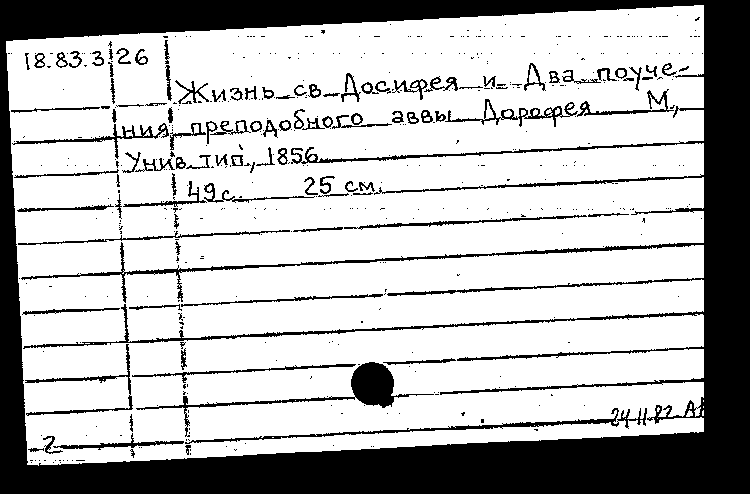 18.83.3.26
Жизнь св. Досифея и Два поуче-
ния преподобного аввы Дорофея. М.,
Унив. тип., 1856.
49 с. 25 см.
24.11.82
2